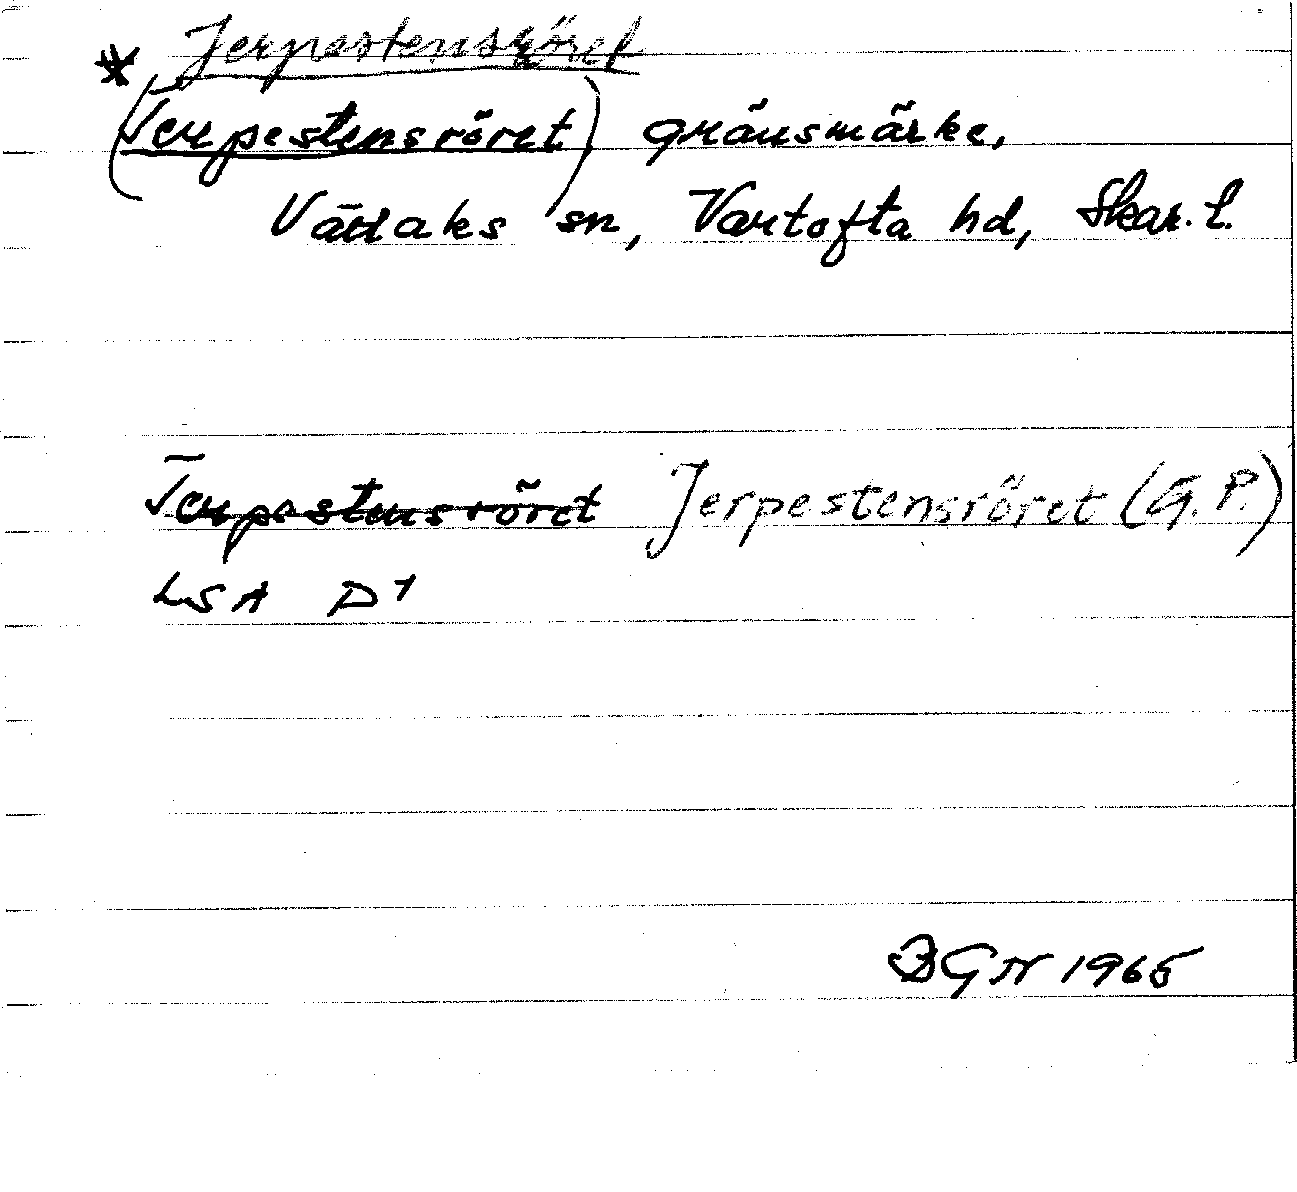 * Jerpestensröret
(Terpestensröret) gränsmärke,
Vättaks sn, Vartofta hd, Skar. l.
Terpestensröret Jerpestensröret (G. P.)
LSA D1
BGN 1965